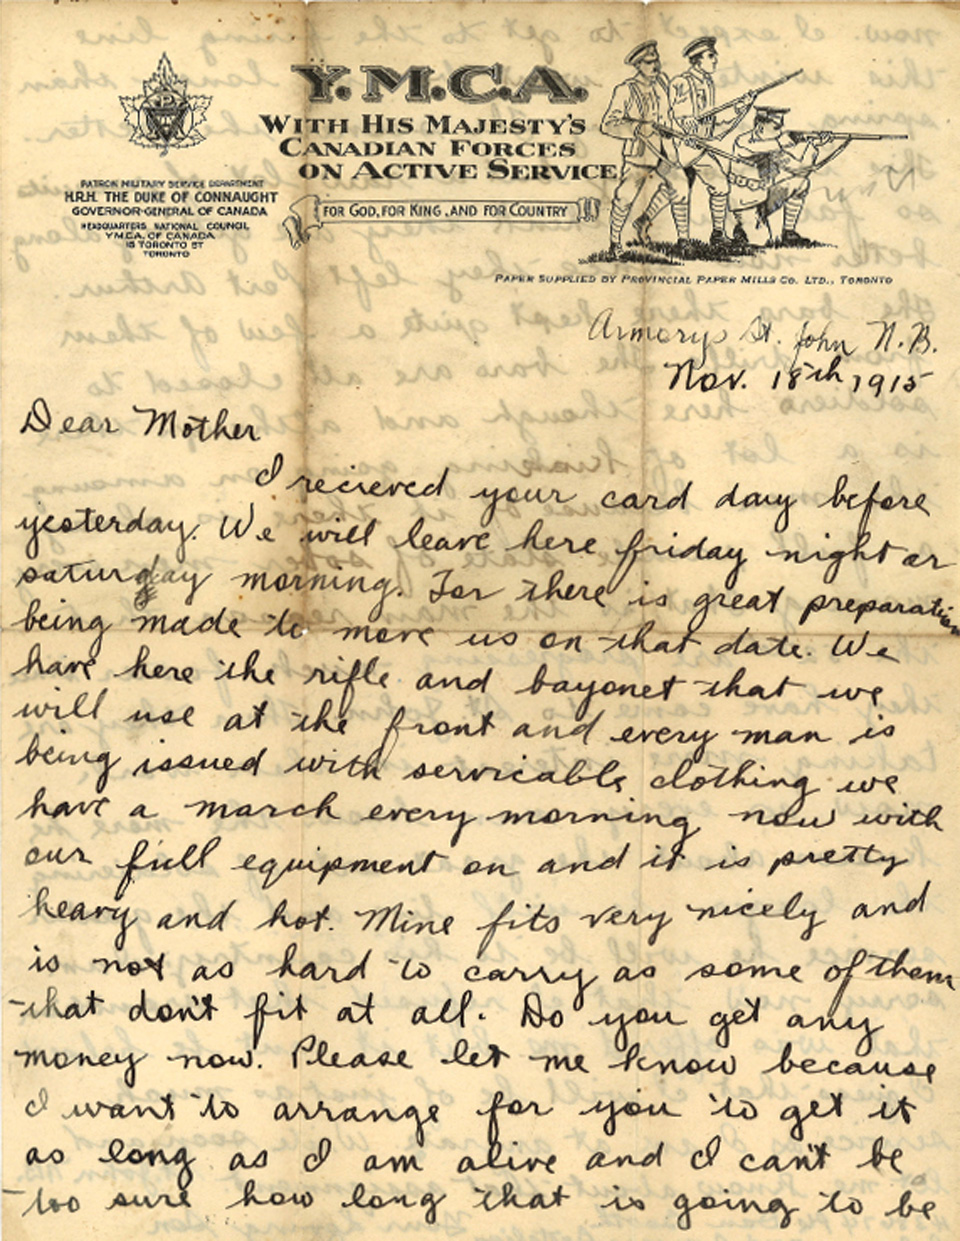 Y.M.C.A.
WITH HIS MAJESTY'S
CANADIAN FORCES
ON ACTIVE SERVICE
FOR GOD, FOR KING, AND FOR COUNTRY
PATRON MILITARY SERVICE DEPARTMENT
H.R.H. THE DUKE OF CONNAUGHT
GOVERNOR-GENERAL OF CANADA
HEADQUARTERS NATIONAL COUNCIL
Y.M.C.A. OF CANADA
15 TORONTO ST
TORONTO
PAPER SUPPLIED BY PROVINCIAL PAPER MILLS CO. LTD., TORONTO
Armorys St. John N.B.
Nov. 18th 1915
Dear Mother
I recieved your card day before
yesterday. We will leave here friday night or
saturday morning. For there is great preparation
being made to move us on that date. We
have here the rifle and bayonet that we
will use at the front and every man is
being issued with servicable clothing we
have a march every morning now with
our full equipment on and it is pretty
heavy and hot. Mine fits very nicely and
is not as hard to carry as some of them
that don't fit at all. Do you get any
money now. Please let me know because
I want to arrange for you to get it
as long as I am alive and I can't be
too sure how long that is going to be